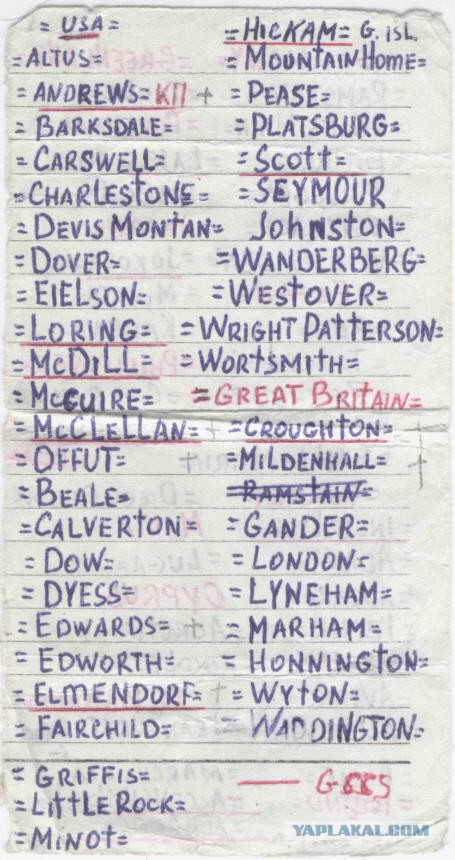 = USA =
= ALTUS =
= ANDREWS = КП +
= BARKSDALE =
= CARSWELL =
= CHARLESTONE =
= DEVIS MONTAN =
= DOVER =
= EIELSON =
= LORING =
= McDILL =
= McGUIRE =
= McCLELLAN = +
= OFFUT = +
= BEALE =
= CALVERTON =
= DOW =
= DYESS =
= EDWARDS = +
= EDWORTH =
= ELMENDORF = +
= FAIRCHILD =
= GRIFFIS =
= LITTLE ROCK =
= MINOT =
= HICKAM = G. ISL.
= MOUNTAIN HOME =
= PEASE =
= PLATSBURG =
= SCOTT =
= SEYMOUR
JOHNSTON =
= WANDERBERG =
= WESTOVER =
= WRIGHT PATTERSON =
= WORTSMITH =
= GREAT BRITAIN =
= CROUGHTON = +
= MILDENHALL = +
= RAMSTAIN =
= GANDER =
= LONDON =
= LYNEHAM =
= MARHAM =
= HONNINGTON =
= WYTON =
= WADDINGTON =
YAPLAKAL.COM